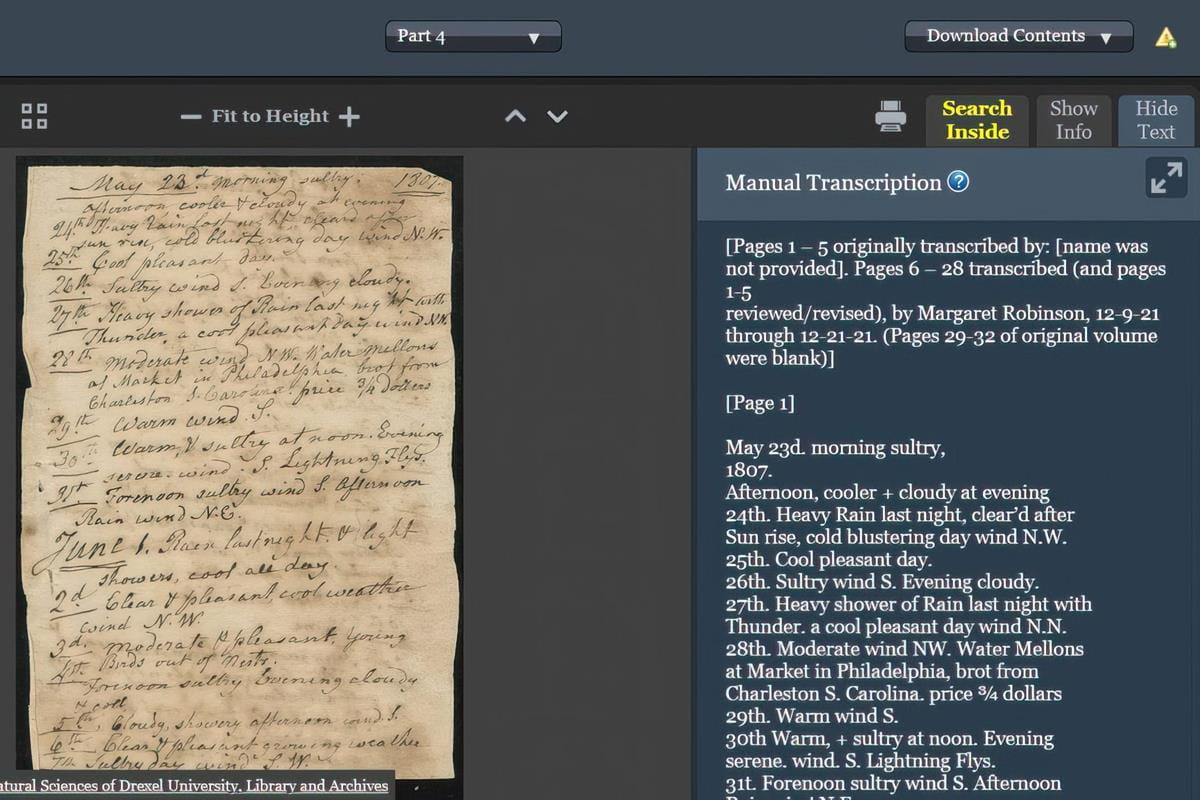 Part 4 ▼
Download Contents ▼
Fit to Height
Search Inside
Show Info
Hide Text
May 23.d morning sultry. 1807.
afternoon cooler & cloudy at evening
24th Heavy Rain last night, cleard after
sun rise, cold blustering day wind N.W.
25th Cool pleasant day.
26th Sultry wind S. Evening cloudy.
27th Heavy shower of Rain last night with
Thunder. a cool pleasant day wind NW
28th Moderate wind N.W. Water Mellons
at Market in Philadelphia, brot from
Charleston S. Carolina. price 3/4 dollers
29th Warm wind S.
30th Warm, & sultry at noon. Evening
serene. wind. S. Lightning Flys.
31st Forenoon sultry wind S. Afternoon
Rain wind N.E.
June 1. Rain last night. & light
showers, cool all day.
2d Clear & pleasant, cool weather
wind N.W.
3d. moderate & pleasant, young
Birds out of Nests.
4st Forenoon sultry Evening cloudy
& cool
5th, Cloudy, showery afternoon wind S.
6th Clear & pleasant growing weather
7th Sultry day wind S.W.
atural Sciences of Drexel University, Library and Archives
Manual Transcription ?
[Pages 1 – 5 originally transcribed by: [name was
not provided]. Pages 6 – 28 transcribed (and pages
1-5
reviewed/revised), by Margaret Robinson, 12-9-21
through 12-21-21. (Pages 29-32 of original volume
were blank)]
[Page 1]
May 23d. morning sultry,
1807.
Afternoon, cooler + cloudy at evening
24th. Heavy Rain last night, clear’d after
Sun rise, cold blustering day wind N.W.
25th. Cool pleasant day.
26th. Sultry wind S. Evening cloudy.
27th. Heavy shower of Rain last night with
Thunder. a cool pleasant day wind N.N.
28th. Moderate wind NW. Water Mellons
at Market in Philadelphia, brot from
Charleston S. Carolina. price ¾ dollars
29th. Warm wind S.
30th Warm, + sultry at noon. Evening
serene. wind. S. Lightning Flys.
31t. Forenoon sultry wind S. Afternoon